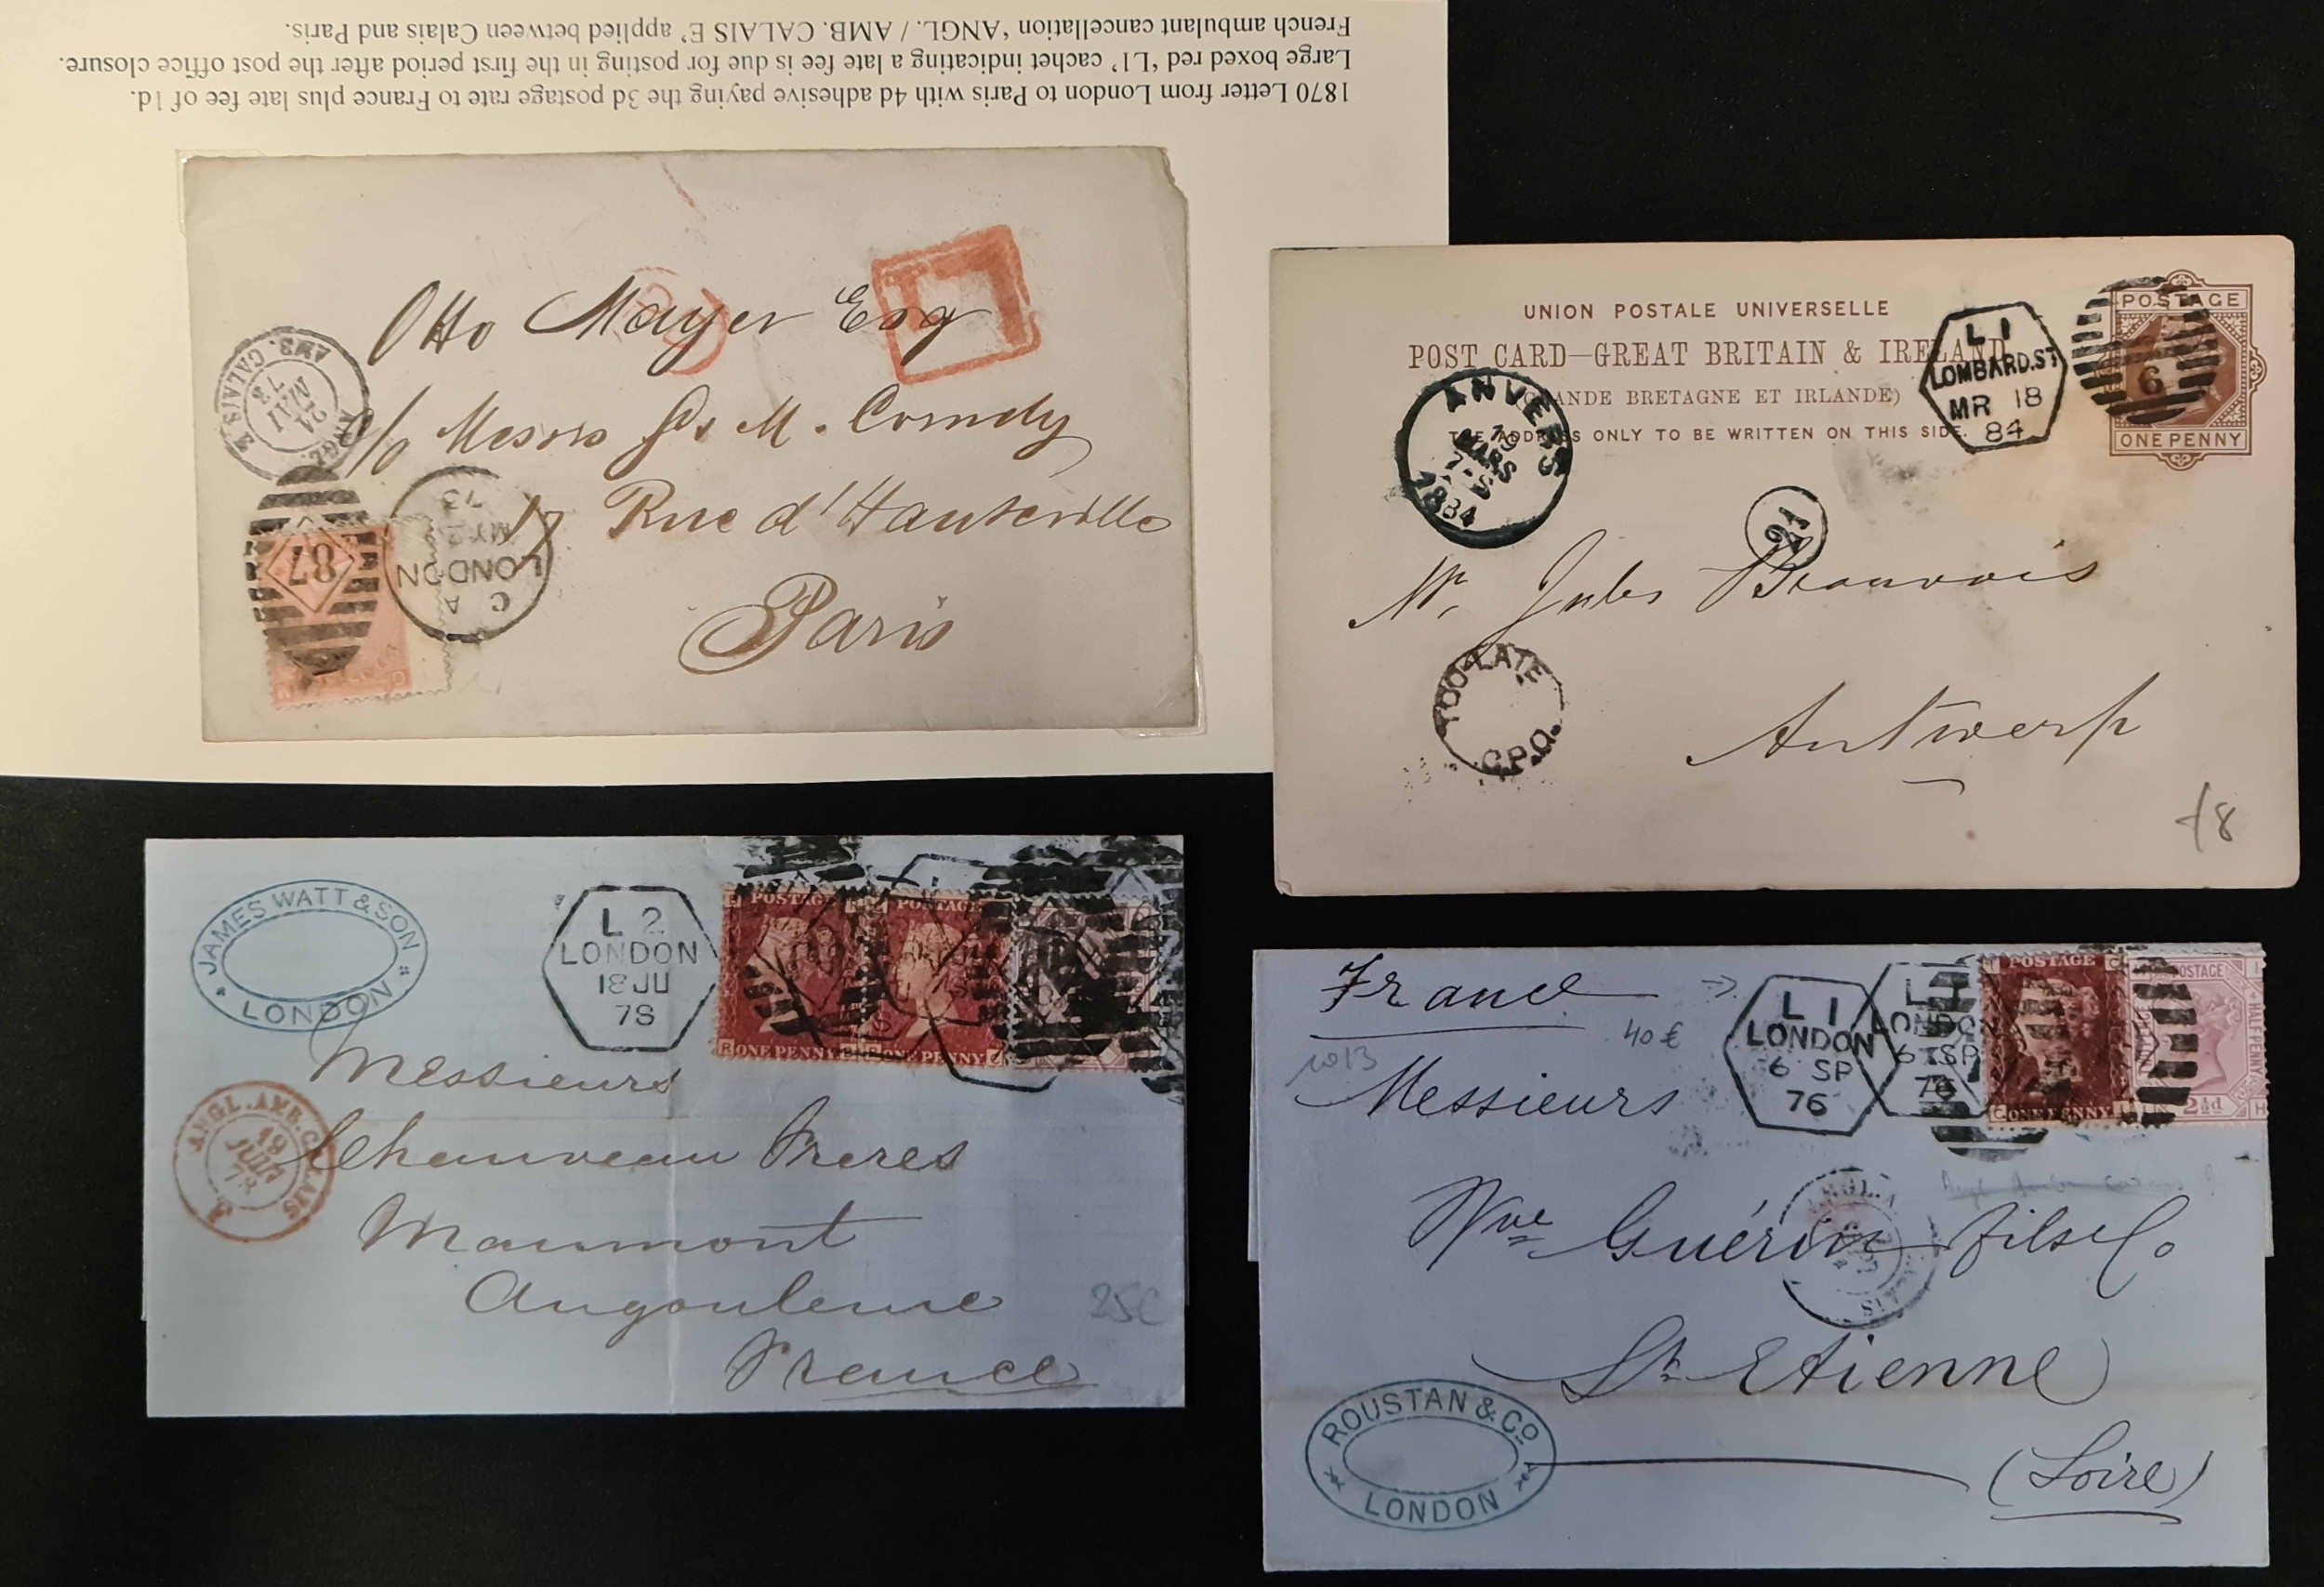 1870 Letter from London to Paris with 4d adhesive paying the 3d postage rate to France plus late fee of 1d.
Large boxed red ‘L1’ cachet indicating a late fee is due for posting in the first period after the post office closure.
French ambulant cancellation ‘ANGL. / AMB. CALAIS E’ applied between Calais and Paris.
L1
Otto Mayer Esq
c/o Messrs
17 Rue d'Hauteville
Paris
ANGL. AMB. CALAIS E
21 MAI 73
87
C A
LONDON
MY
73
UNION POSTALE UNIVERSELLE
POST CARD—GREAT BRITAIN & IRELAND
(GRANDE BRETAGNE ET IRLANDE)
THE ADDRESS ONLY TO BE WRITTEN ON THIS SIDE.
POSTAGE
ONE PENNY
6
L 1
LOMBARD.ST
MR 18
84
ANVERS
19 MARS
1884
Mr. Jules Beauvais
TOO-LATE
G.P.O.
Antwerp
JAMES WATT & SON
LONDON
L 2
LONDON
18 JU
78
POSTAGE
ONE PENNY
POSTAGE
ONE PENNY
Messieurs
Chauveau Freres
Maumont
Angouleme
France
ANGL. AMB. CALAIS
19 JUIN 78
25€
France
40 €
1013
L 1
LONDON
6 SP
76
L 1
LONDON
6 SP
76
POSTAGE
ONE PENNY
POSTAGE
2½d
HALF-PENNY
Messieurs
Vve Guérin fils & Co
St Etienne
(Loire)
ROUSTAN & Co
LONDON